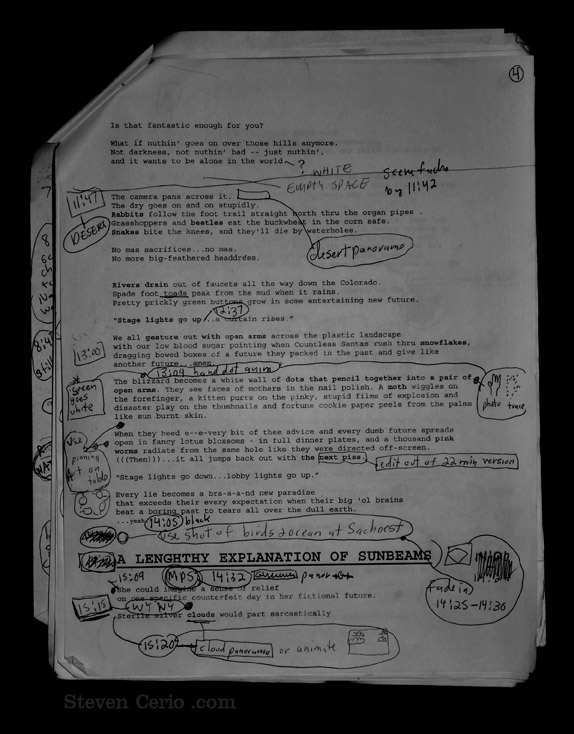 4
Is that fantastic enough for you?
What if nuthin' goes on over those hills anymore.
Not darkness, not nuthin' bad -- just nuthin',
and it wants to be alone in the world
?
WHITE
EMPTY SPACE
by 11:42
11:47
DESERT
The camera pans across it.
The dry goes on and on stupidly.
Rabbits follow the foot trail straight north thru the organ pipes .
Grasshoppers and beetles eat the buckwheat in the corn safe.
Snakes bite the knees, and they'll die by waterholes.
desert panorama
No mas sacrifices...no mas.
No more big-feathered headdress.
Rivers drain out of faucets all the way down the Colorado.
Spade foot toads peak from the mud when it rains.
Pretty prickly green buttons grow in some entertaining new future.
12:37
"Stage lights go up...a curtain rises."
13:00
We all gesture out with open arms across the plastic landscape
with our low blood sugar pointing when Countless Santas rush thru snowflakes,
dragging bowed boxes of a future they packed in the past and give like
another future...amen.
13:04 hand dot anim
Screen goes white
The blizzard becomes a white wall of dots that pencil together into a pair of
open arms. They see faces of mothers in the nail polish. A moth wiggles on
the forefinger, a kitten purrs on the pinky, stupid films of explosion and
disaster play on the thumbnails and fortune cookie paper peels from the palms
like sun burnt skin.
photo trace
use
pinning
on table
When they heed e--e-very bit of thee advice and every dumb future spreads
open in fancy lotus blossoms - in full dinner plates, and a thousand pink
worms radiate from the same hole like they were directed off-screen.
(((Then)))...it all jumps back out with the next piss.
edit out of 22 min version
"Stage lights go down...lobby lights go up."
Every lie becomes a bra-a-a-nd new paradise
that exceeds their every expectation when their big 'ol brains
beat a boring past to tears all over the dull earth.
...yeah
14:05 black
use shot of birds & ocean at Sachoest
A LENGHTHY EXPLANATION OF SUNBEAMS
15:09
MPS
14:32
panorama
fade in
14:25-14:30
She could imagine a sense of relief
on one specific counterfeit day in her fictional future.
15:15
WY NY
Sterile silver clouds would part sarcastically
15:20
cloud panorama or animate
Steven Cerio .com